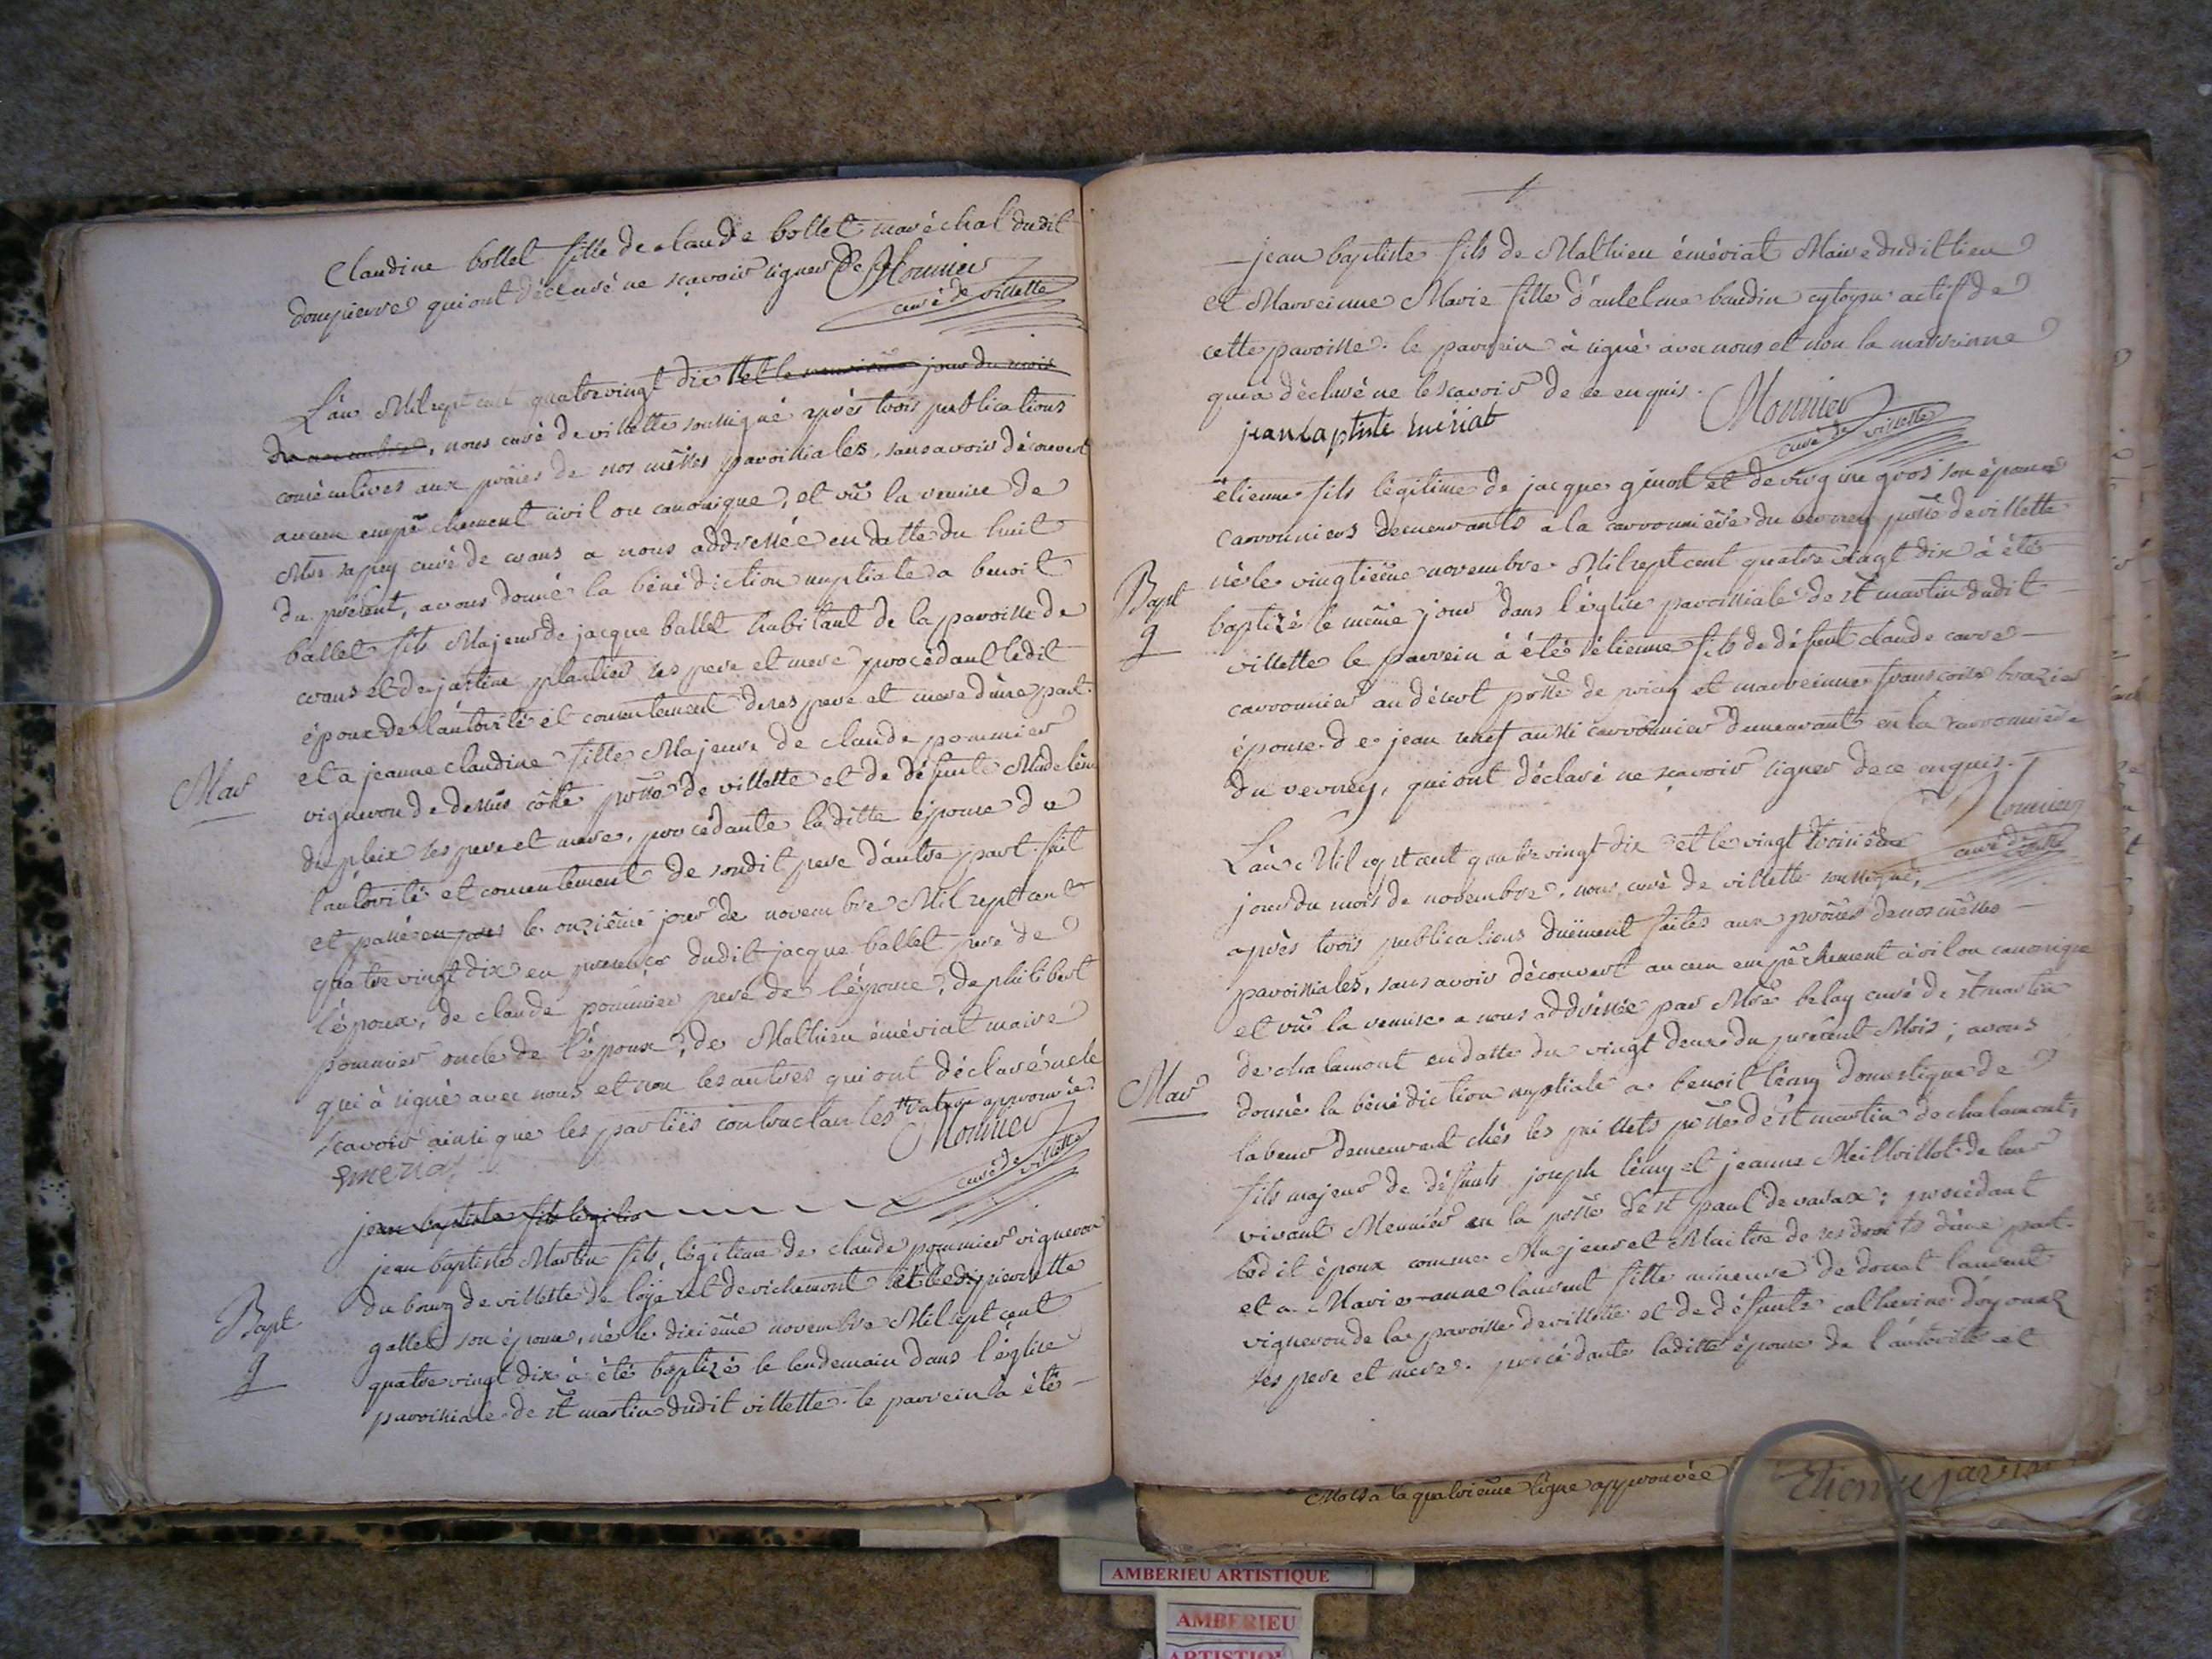 Claudine bollet fille de claude bollet maréchal dudit
dompierre qui ont déclaré ne sçavoir signer De ce
Monnier
curé de villette
L'an Mil sept cent quatre vingt dix et le jour du mois
, nous curé de villette soussigné après trois publications
consécutives aux prônes de nos messes paroissiales, sans avoir découvert
aucun empêchement civil ou canonique, et vû la remise de
Mre sapey curé de crans a nous addressée en datte du huit
du présent, avons donné la bénédiction nuptiale a benoit
ballet fils Majeur de jacque ballet habitant de la paroisse de
crans et de plantier ses pere et mere procédant ledit
époux de l'autorité et consentement de ses pere et mere d'une part.
Mar
et a jeanne claudine fille Majeure de claude pommier
vigneron de dessus côte psse de villette et de défunte Madeleine
dupleix ses pere et mere, procédante laditte épouse de
l'autorité et consentement de sondit pere d'autre part. fait
et passé le onzième jour de novembre Mil sept cent
quatre vingt dix en presence dudit jacque ballet pere de
l'époux, de claude pommier pere de l'épouse, de philibert
pommier oncle de l'épouse, de Mathieu émériat maire
qui à signé avec nous et non les autres qui ont déclaré ne le
scavoir ainsi que les parties contractantes approuvée
émeriat
Monnier
curé de villette
jean baptiste fils légitime
jean baptiste Martin fils légitime de claude pommier vigneron
du bourg de villette de loye et de richemont et de pierrette
Bapt
gallet son épouse, né le dixième novembre Mil sept cent
g
quatre vingt dix à été baptizé le lendemain dans l'église
paroissiale de st martin dudit villette. le parrein à été
jean baptiste fils de Mathieu émériat Maire dudit lieu
et Marreinne Marie fille d'antelme baudin cytoyen actif de
cette paroisse. le parrein à signé avec nous et non la marreinne
qui a déclaré ne le scavoir de ce enquis.
jean baptiste émériat
Monnier
curé de villette
étienne fils légitime de jacque ginod et de virginie gros son épouse
carronniers demeurants a la carronnière du vevrey psse de villette
Bapt
né le vingtième novembre Mil sept cent quatre vingt dix à été
g
baptizé le même jour dans l'église paroissiale de st martin dudit
villette le parrein à été étienne fils de défunt claude carre
carronnier au désert psse de priay et marreinne francoise brazier
épouse de jean aussi carronnier demeurant en la carronnière
du vevrey, qui ont déclaré ne scavoir signer de ce enquis.
Monnier
curé de villette
L'an Mil sept cent quatre vingt dix et le vingt troisième
jour du mois de novembre, nous curé de villette soussigné,
après trois publications duëment faites aux prônes de nos messes
paroissiales, sans avoir découvert aucun empêchement civil ou canonique
et vû la remise a nous addressée par Mre belay curé de st martin
de chalamont en datte du vingt deux du présent Mois; avons
Mar
donné la bénédiction nuptiale a benoit lémy domestique de
labeur demeurant chés les juillets psse de st martin de chalamont,
fils majeur de défunts joseph lémy et jeanne Meilloillot de leur
vivant Meunier en la psse de st paul de varax; procédant
ledit époux comme Majeur et Maitre de ses droits d'une part.
et a Marie-anne laurent fille mineure de donat laurent
vigneron de la paroisse de villette et de défunte catherine d'oyonax
ses pere et mere. procédante laditte épouse de l'autorité et
Mots a la quatrième ligne approuvée
Etienne
AMBERIEU ARTISTIQUE
AMBERIEU
ARTISTIQUE